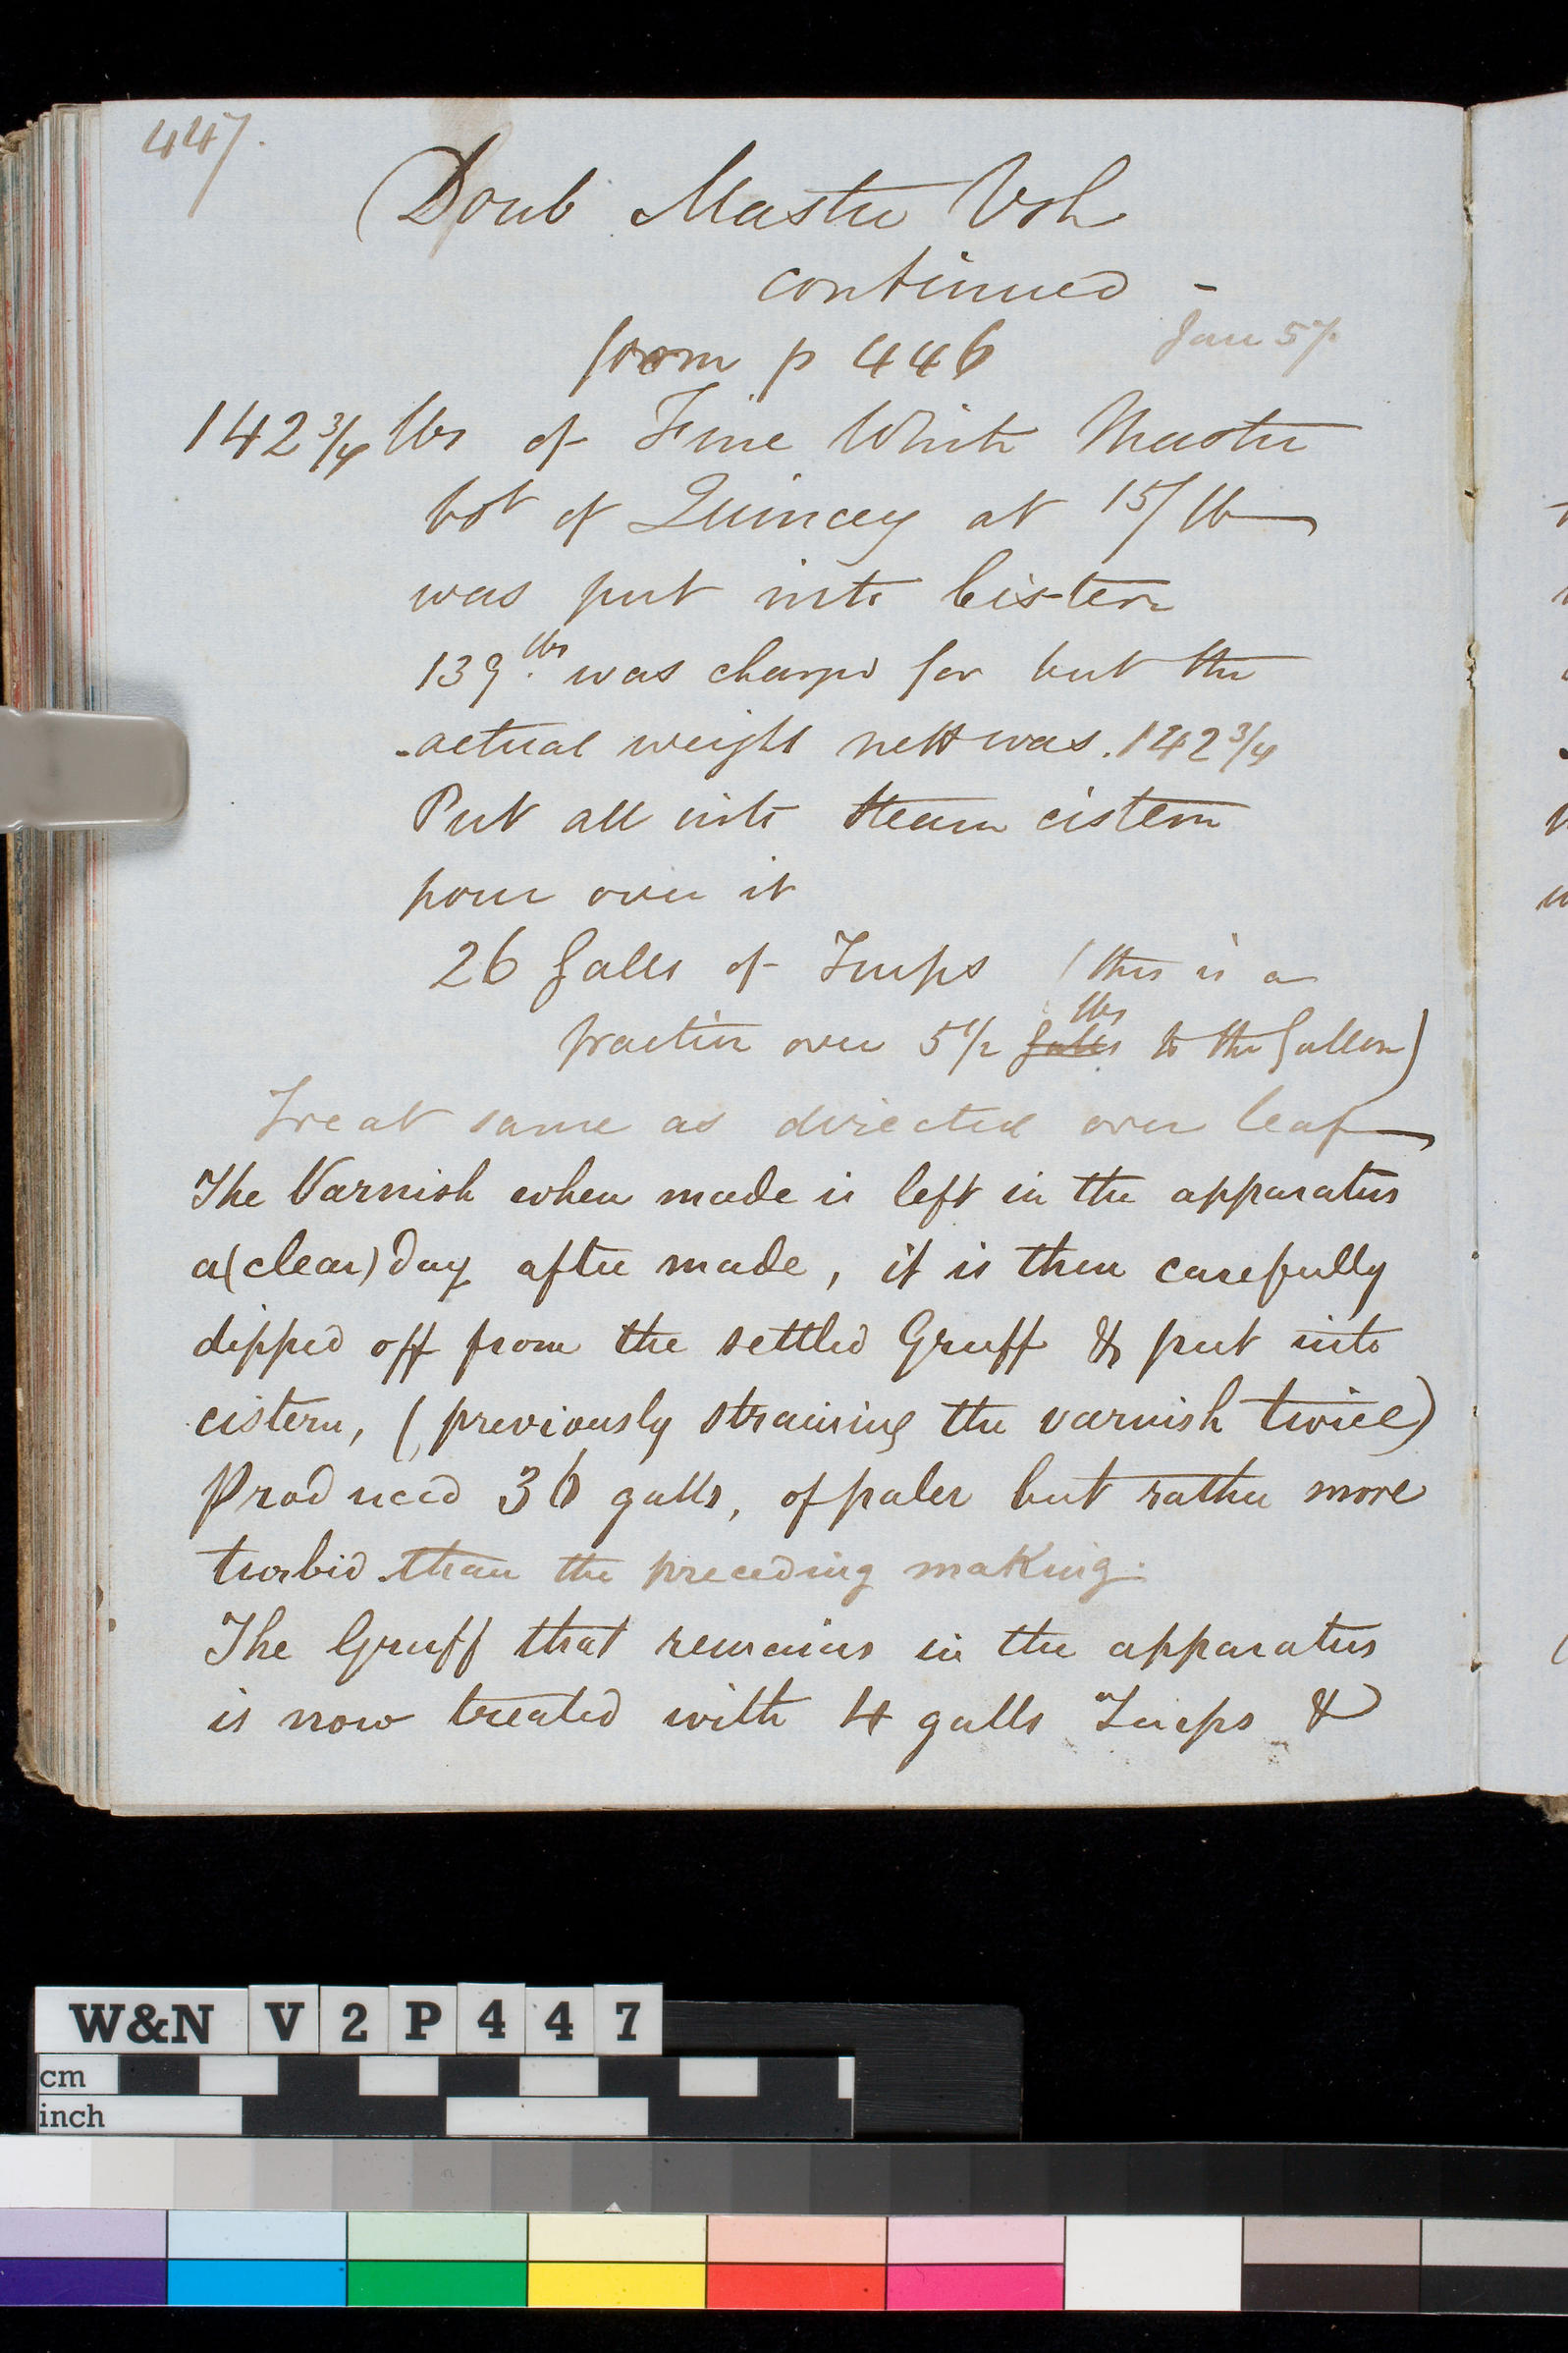 447.
Doub Mastic Vsh
continued -
from p 446 Jan 57.
142 3/4 lbs of Fine White Mastic
bot of Quincey at 15/ lb
was put into Cistern
139 lbs. was charged for but the
actual weight nett was. 142 3/4
Put all into steam cistern
pour over it
26 Galls of Turps (this is a
fraction over 5 1/2 galls lbs to the Gallon)
Treat same as directed over leaf
The Varnish when made is left in the apparatus
a (clear) day after made, it is then carefully
dipped off from the settled Gruff & put into
cistern, (previously straining the varnish twice)
Produced 36 galls, of paler but rather more
turbid than the preceding making.
The Gruff that remains in the apparatus
is now treated with 4 galls Turps &
W&N V 2 P 4 4 7
cm
inch